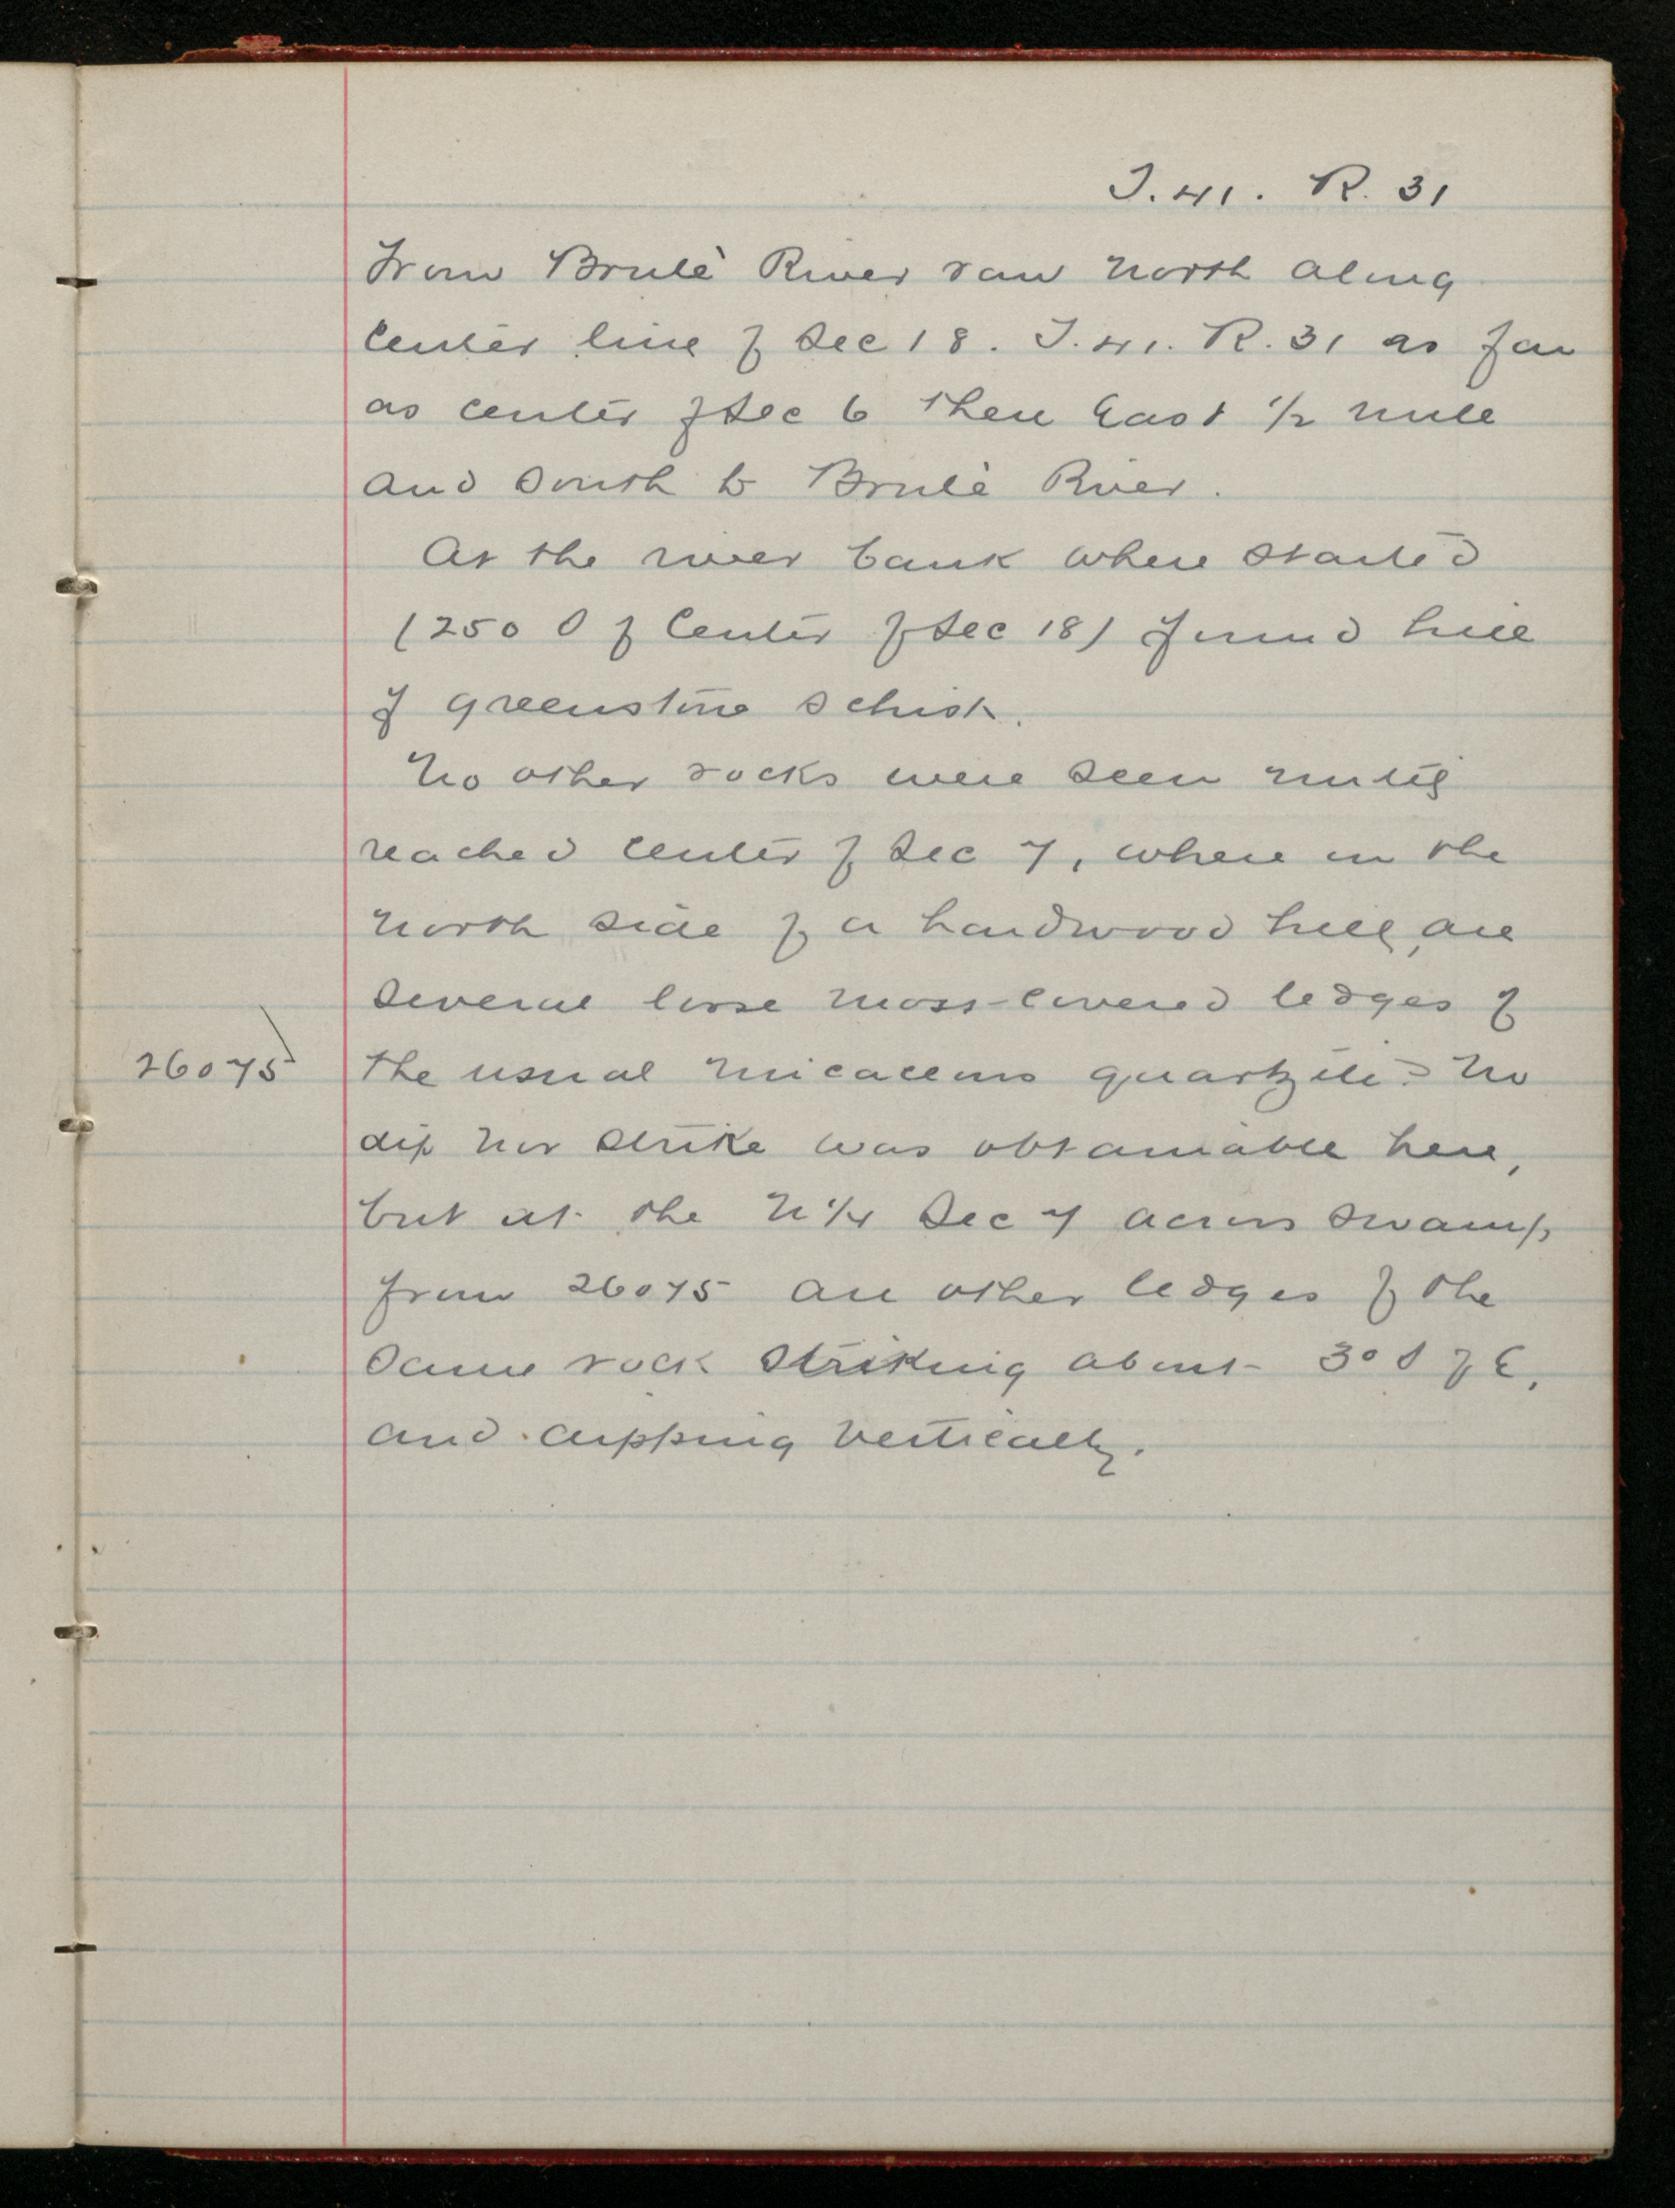 T.41. R. 31
From Brulè River ran north along
Center line of Sec 18. T.41. R. 31 as far
as center of Sec 6 then East 1/2 mile
and South to Brulè River.
At the river bank where started
(250 S of Center of Sec 18) found hill
of greenstone schist.
No other rocks were seen until
reached center of Sec 7, where on the
north side of a hardwood hill, are
several loose moss-covered ledges of
26075 the usual micaceous quartzite. No
dip nor strike was obtainable here,
but at the N 1/4 Sec 7 across swamp
from 26075 are other ledges of the
same rock striking about 3° S of E,
and dipping vertically.